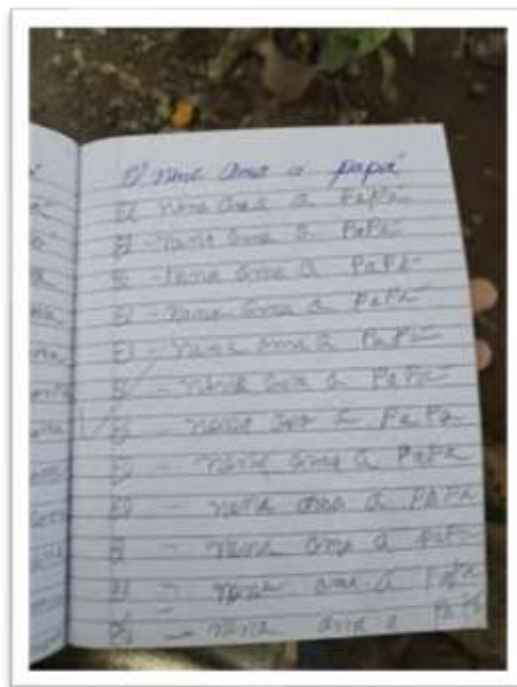 El nene ama a papá
El nene ama a PaPá
El - nene ama a PaPá
El - nene ama a PaPá
El - nene ama a PaPá
El - nene ama a PaPá
El - nene ama a PaPá
El - nene ama a PaPa
El - nene ama a PaPa
El - nene ama a PAPA
El - nene ama a PaPa
El - nene ama a PaPa
El - nene ama a PaPa